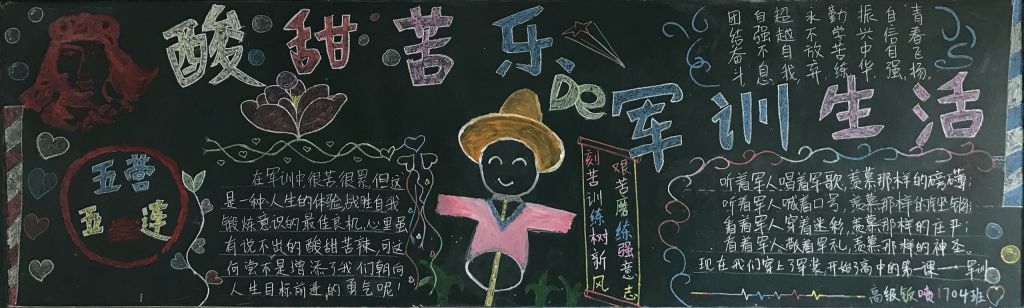 酸甜苦乐
De
军训生活
青春飞扬
自信自强
振兴中华
勤学苦练
永不放弃
超越自我
自强不息
团结奋斗
五营
五连
在军训中很苦很累,但这
是一种人生的体验,战胜自我
锻炼意识的最佳良机,心里虽
有说不出的酸甜苦辣,可这
何尝不是增添了我们朝向
人生目标前进的勇气呢!
艰苦磨练强意志
刻苦训练树新风
听着军人唱着军歌,羡慕那样的磅礴;
听着军人喊着口号,羡慕那样的
看着军人穿着迷彩,羡慕那样的庄严;
看着军人敬着军礼,羡慕那样的神圣.
现在我们穿上了军装开始了高中的第一课——军训
高级 1704班